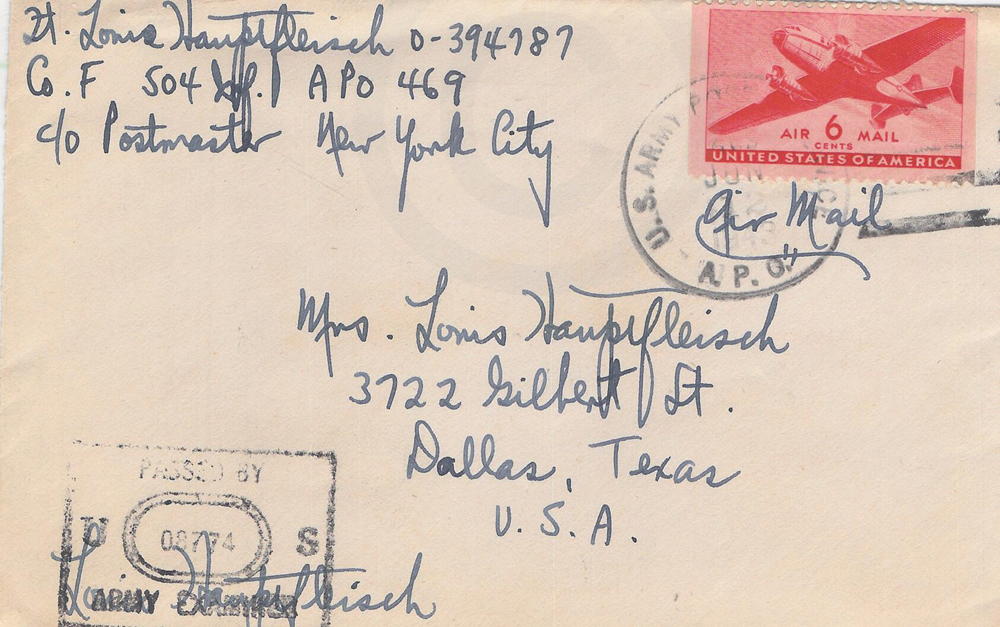 Lt. Louis Hauptfleisch O-394787
Co. F 504 Inf. APO 469
c/o Postmaster New York City
AIR 6 MAIL
CENTS
UNITED STATES OF AMERICA
U.S. ARMY
JUN
A.P.O.
Air Mail
Mrs. Louis Hauptfleisch
3722 Gilbert St.
Dallas, Texas
U.S.A.
PASSED BY
U 08774 S
ARMY EXAMINER
Louis Hauptfleisch